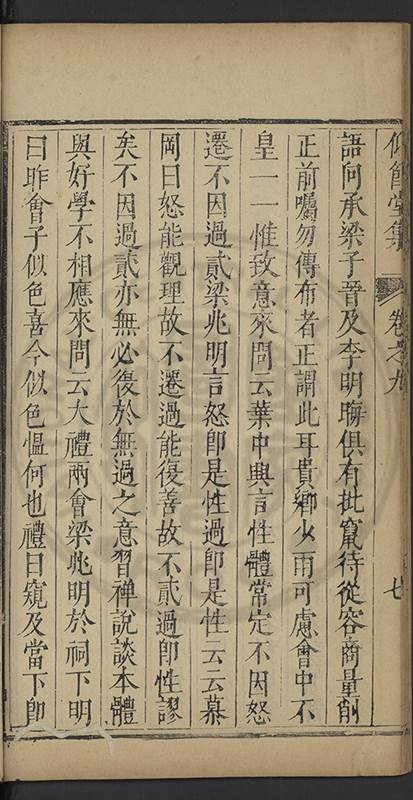 仰節堂集 卷之九 七
語向承梁子晉及李明聨俱有批竄待從容商量削
正前囑勿傳布者正謂此耳貴鄉少雨可慮會中不
皇一一惟致意來問云葉中與言性體常定不因怒
遷不因過貳梁兆明言怒卽是性過卽是性云云慕
岡曰怒能觀理故不遷過能復善故不貳過卽性謬
矣不因過貳亦無必復於無過之意習禪說談本體
與好學不相應來問云大禮兩會梁兆明於祠下明
曰昨會子似色喜今似色慍何也禮曰窺及當下卽